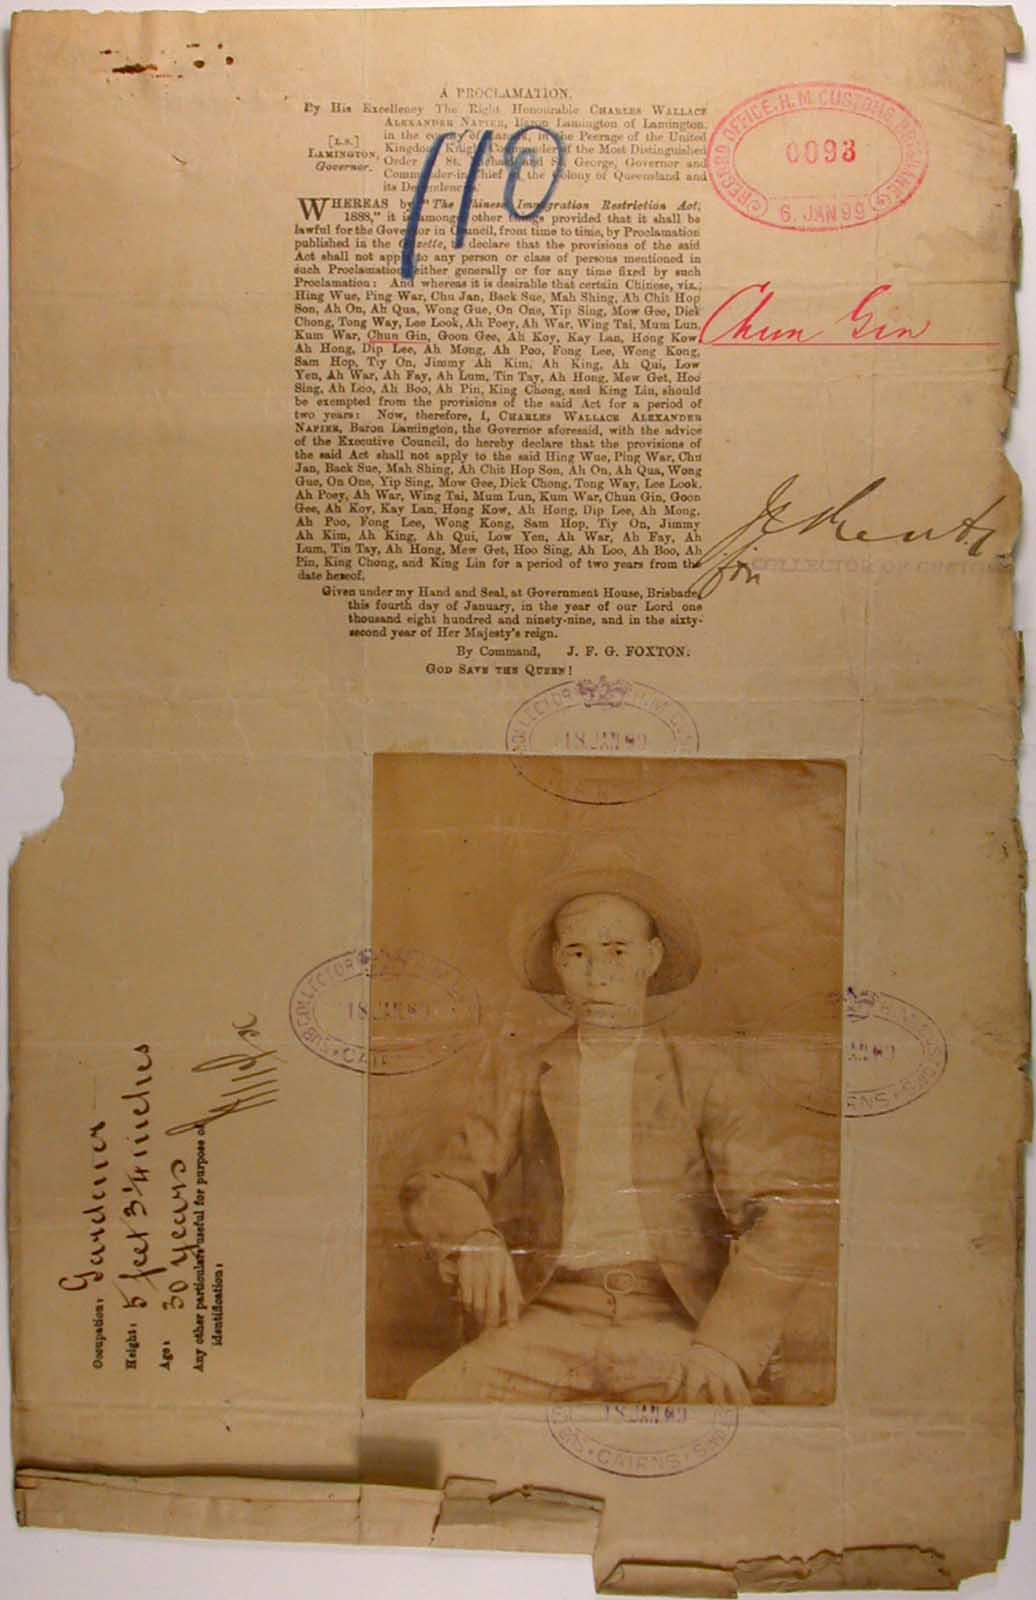 A PROCLAMATION.
By His Excellency The Right Honourable CHARLES WALLACE
ALEXANDER NAPIER, Baron Lamington of Lamington,
in the county of Lanark, in the Peerage of the United
Kingdom, Knight Commander of the Most Distinguished
Order of St. Michael and St. George, Governor and
Commander-in-Chief of the Colony of Queensland and
its Dependencies.
[L.S.]
LAMINGTON,
Governor.
110
RECORD OFFICE, H.M CUSTOMS, BRISBANE
0093
6. JAN 99
WHEREAS by "The Chinese Immigration Restriction Act,
1888," it is amongst other things provided that it shall be
lawful for the Governor in Council, from time to time, by Proclamation
published in the Gazette, to declare that the provisions of the said
Act shall not apply to any person or class of persons mentioned in
such Proclamation either generally or for any time fixed by such
Proclamation: And whereas it is desirable that certain Chinese, viz.,
Hing Wue, Ping War, Chu Jan, Back Sue, Mah Shing, Ah Chit Hop
Son, Ah On, Ah Qua, Wong Gue, On One, Yip Sing, Mow Gee, Dick
Chong, Tong Way, Lee Look, Ah Poey, Ah War, Wing Tai, Mum Lun,
Kum War, Chun Gin, Goon Gee, Ah Koy, Kay Lan, Hong Kow,
Ah Hong, Dip Lee, Ah Mong, Ah Poo, Fong Lee, Wong Kong,
Sam Hop, Tiy On, Jimmy Ah Kim, Ah King, Ah Qui, Low
Yen, Ah War, Ah Fay, Ah Lum, Tin Tay, Ah Hong, Mew Get, Hoo
Sing, Ah Loo, Ah Boo, Ah Pin, King Chong, and King Lin, should
be exempted from the provisions of the said Act for a period of
two years: Now, therefore, I, CHARLES WALLACE ALEXANDER
NAPIER, Baron Lamington, the Governor aforesaid, with the advice
of the Executive Council, do hereby declare that the provisions of
the said Act shall not apply to the said Hing Wue, Ping War, Chu
Jan, Back Sue, Mah Shing, Ah Chit Hop Son, Ah On, Ah Qua, Wong
Gue, On One, Yip Sing, Mow Gee, Dick Chong, Tong Way, Lee Look,
Ah Poey, Ah War, Wing Tai, Mum Lun, Kum War, Chun Gin, Goon
Gee, Ah Koy, Kay Lan, Hong Kow, Ah Hong, Dip Lee, Ah Mong,
Ah Poo, Fong Lee, Wong Kong, Sam Hop, Tiy On, Jimmy
Ah Kim, Ah King, Ah Qui, Low Yen, Ah War, Ah Fay, Ah
Lum, Tin Tay, Ah Hong, Mew Get, Hoo Sing, Ah Loo, Ah Boo, Ah
Pin, King Chong, and King Lin for a period of two years from the
date hereof.
Chun Gin
for COLLECTOR OF CUSTOMS
Given under my Hand and Seal, at Government House, Brisbane,
this fourth day of January, in the year of our Lord one
thousand eight hundred and ninety-nine, and in the sixty-
second year of Her Majesty's reign.
By Command, J. F. G. FOXTON.
GOD SAVE THE QUEEN!
COLLECTOR H.M. CUS
18 JAN 99
SUB COLLECTOR
18 JAN 99
CAI
H.M. CUSTOMS
JAN 99
RNS
18 JAN 99
CAIRNS
Occupation: Gardener
Height: 5 feet 3¼ inches
Age: 30 years
Any other particulars useful for purpose of
identification: Nil